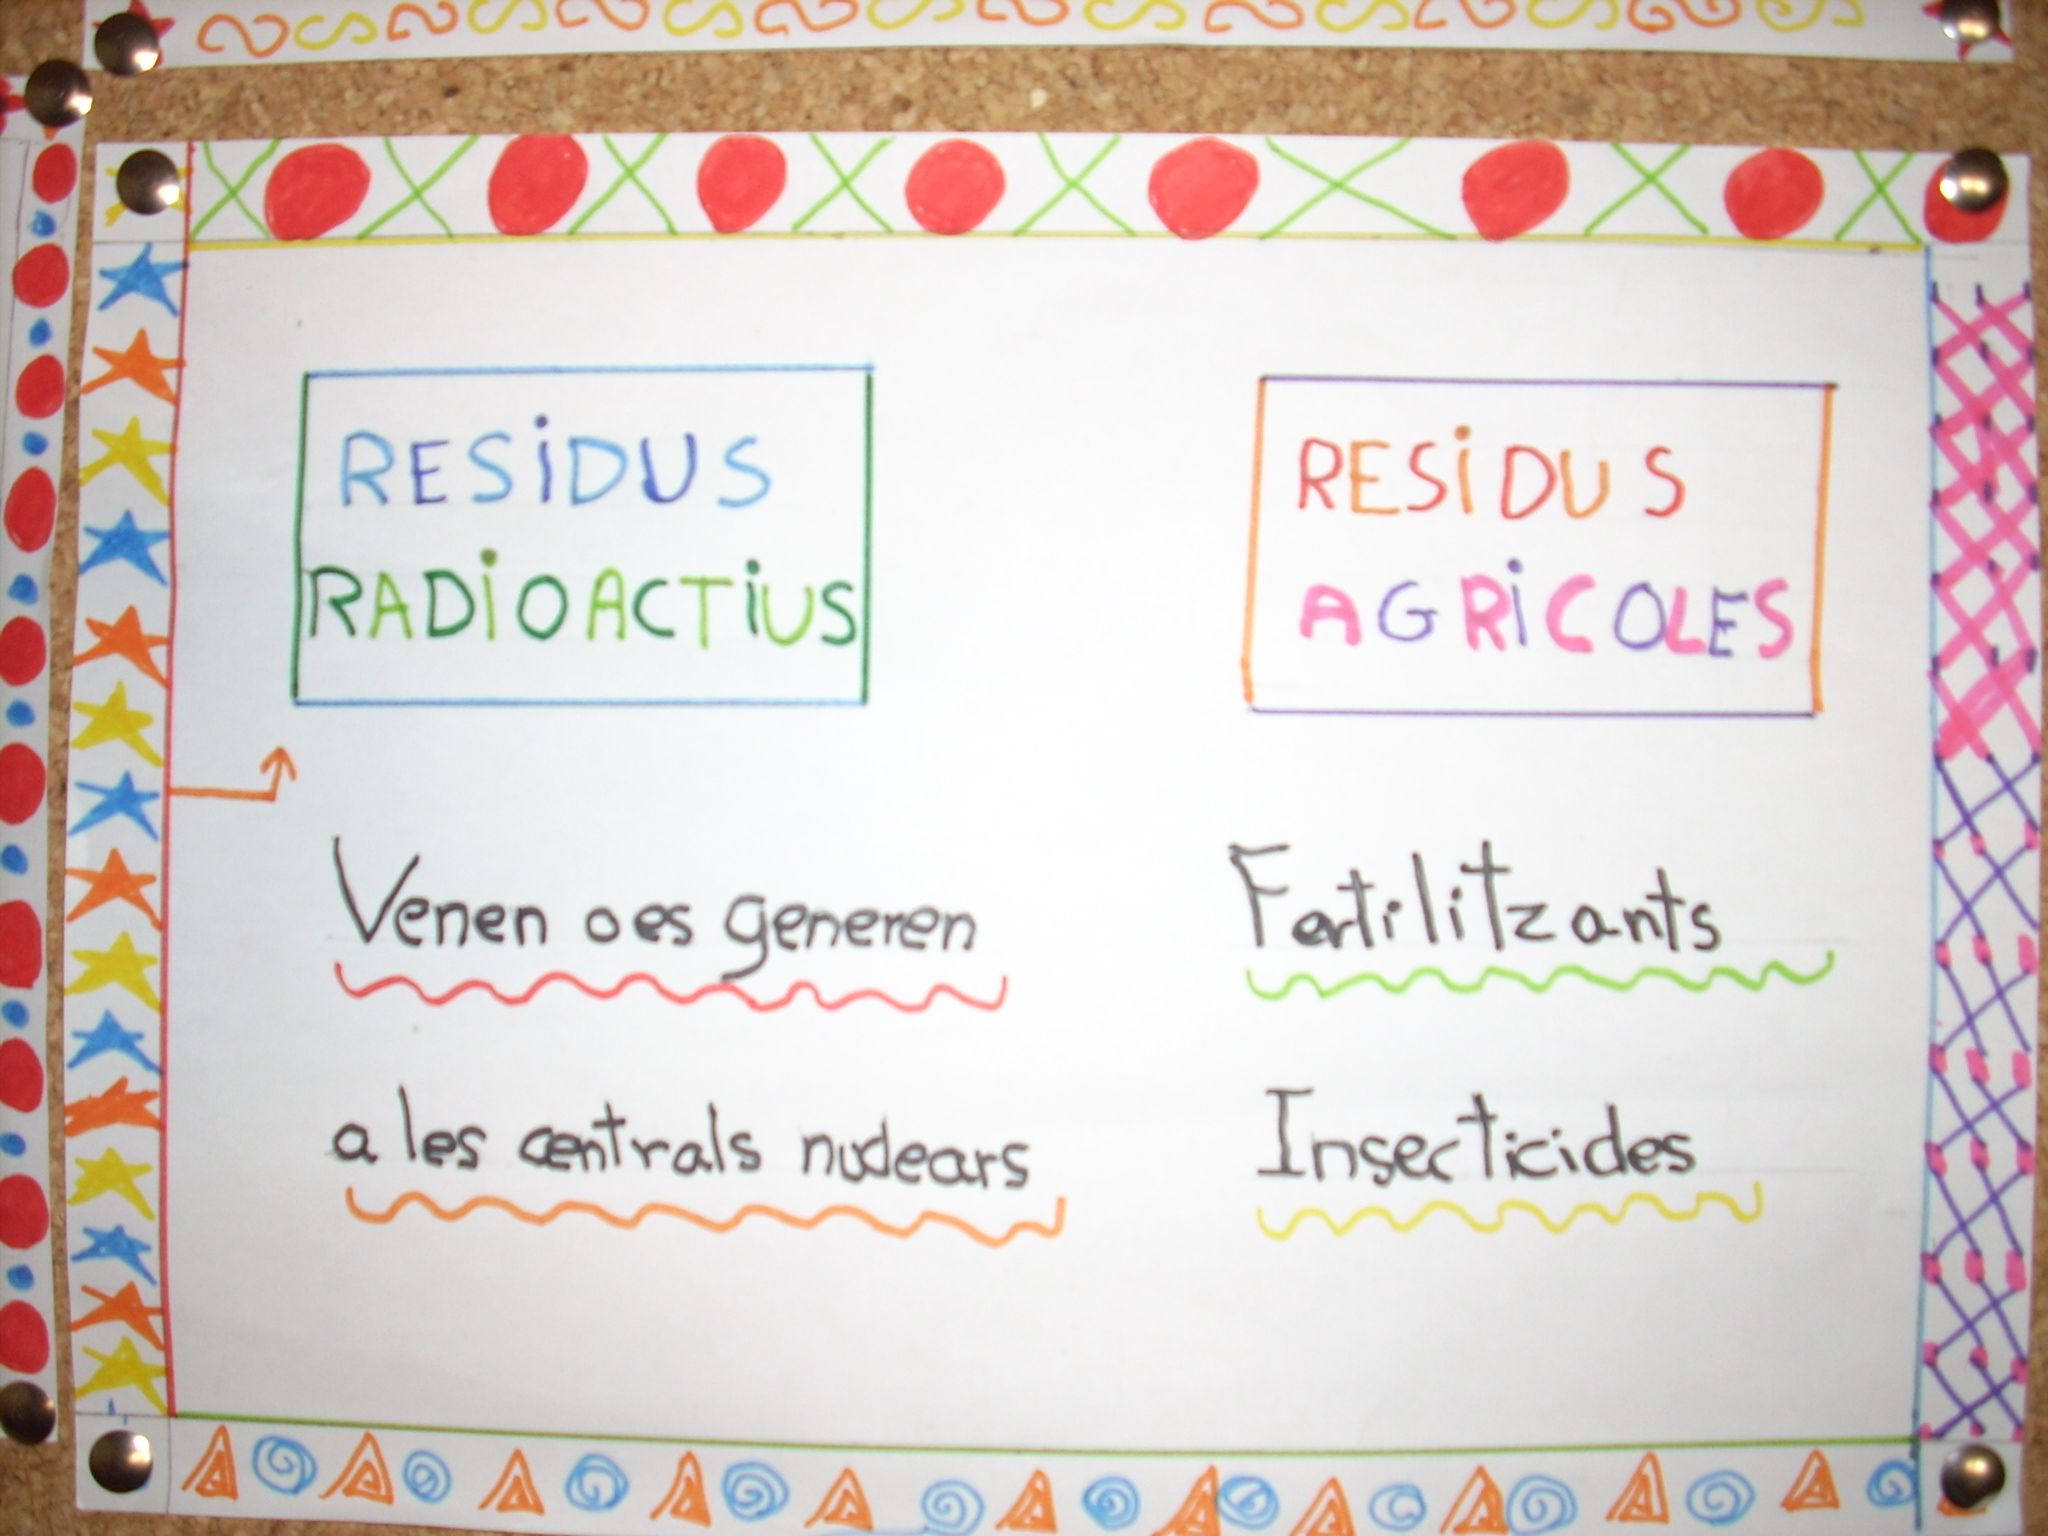 RESiDUS
RADiOACTiUS
Venen o es generen
a les centrals nuclears
RESiDUS
AGRiCOLES
Fertilitzants
Insecticides